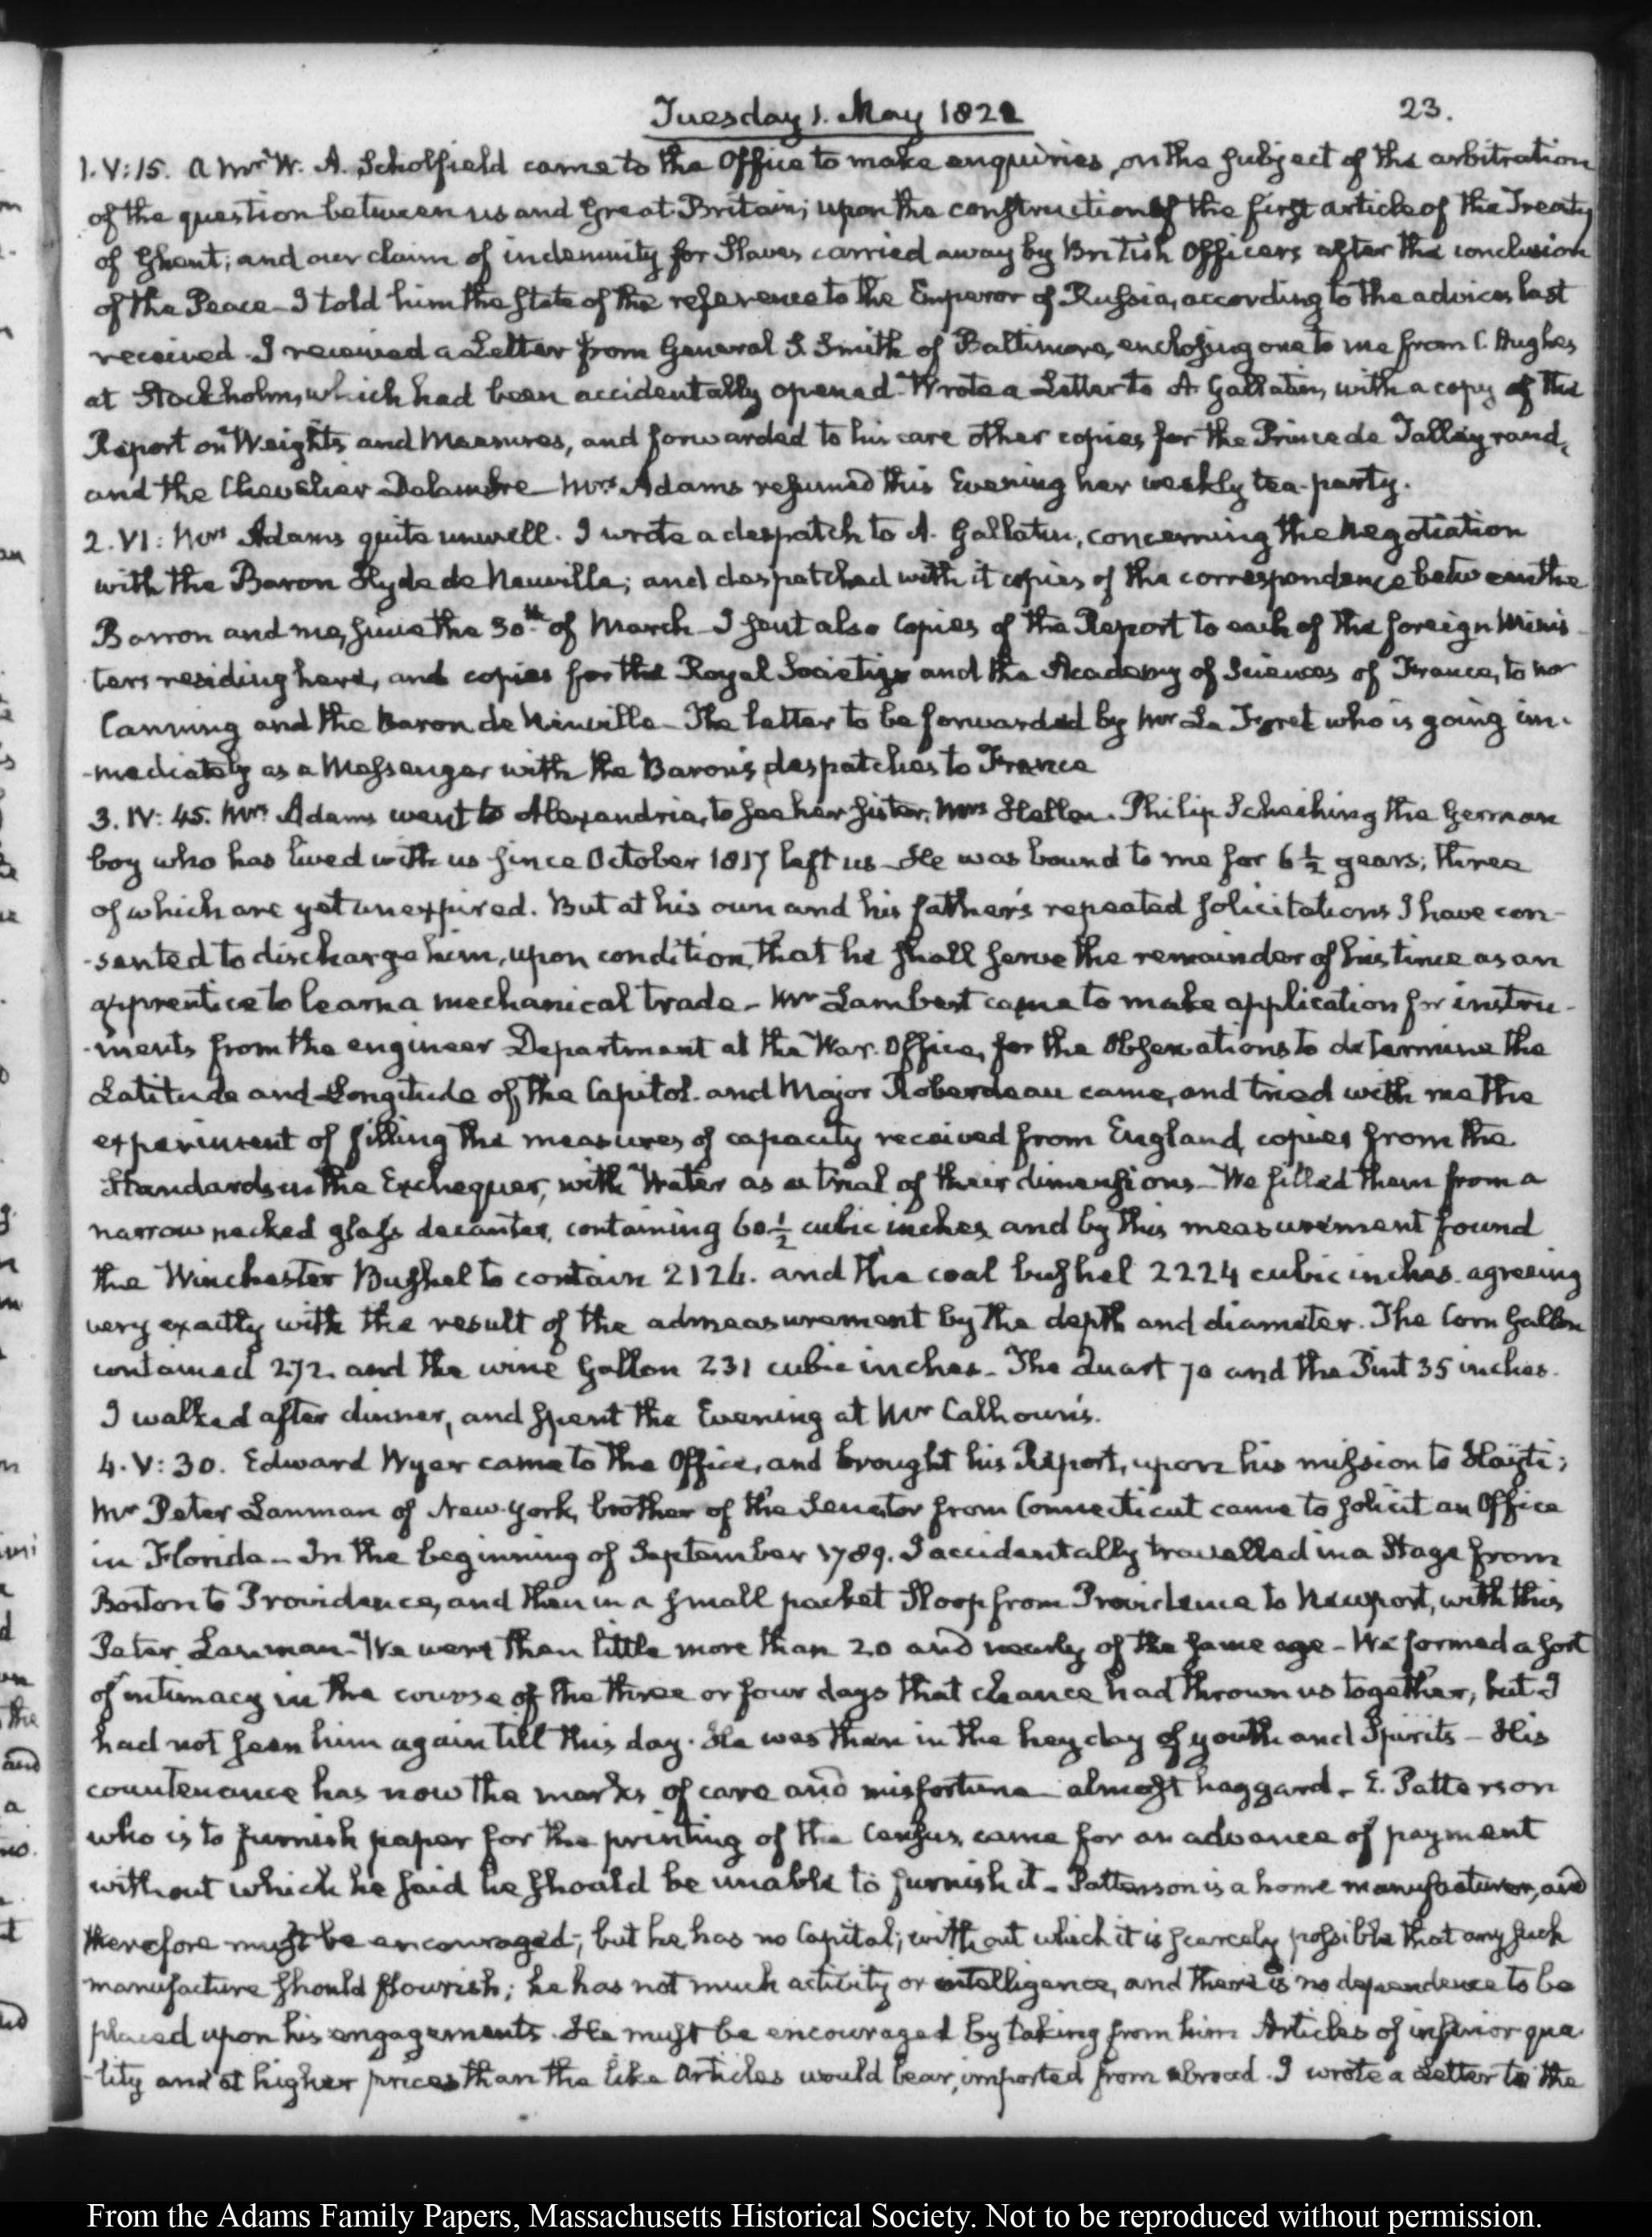 Tuesday 1. May 1821
23.
1. V: 15. A Mr W. A. Scholfield came to the Office to make enquiries, on the subject of the arbitration
of the question between us and Great-Britain; upon the construction of the first article of the Treaty
of Ghent; and our claim of indemnity for Slaves carried away by British Officers after the conclusion
of the Peace— I told him the state of the reference to the Emperor of Russia, according to the advices last
received. I received a Letter from General S. Smith of Baltimore, enclosing one to me from C. Hughes
at Stockholm, which had been accidentally opened— Wrote a Letter to A. Gallatin, with a copy of the
Report on Weights and Measures, and forwarded to his care other copies for the Prince de Talleyrand,
and the Chevalier Delambre— Mrs Adams resumed this Evening her weekly tea-party.
2. VI: Mrs Adams quite unwell. I wrote a despatch to A. Gallatin, concerning the Negotiation
with the Baron Hyde de Neuville; and despatched with it copies of the correspondence between the
Barron and me, since the 30th of March— I sent also Copies of the Report to each of the foreign Minis-
ters residing here, and copies for the Royal Society and the Academy of Sciences of France, to Mr
Canning and the Baron de Neuville— The latter to be forwarded by Mr La Foret who is going im-
-mediately as a Messenger with the Baron's despatches to France
3. IV: 45. Mrs Adams went to Alexandria, to see her Sister, Mrs Hellen. Philip Scheihing the German
boy who has lived with us since October 1817 left us— He was bound to me for 6 1/2 years; three
of which are yet unexpired. But at his own and his father's repeated solicitations I have con-
-sented to discharge him, upon condition, that he shall serve the remainder of his time as an
apprentice to learn a mechanical trade— Mr Lambert came to make application for instru-
-ments from the engineer Department at the War-Office, for the Observations to determine the
Latitude and Longitude of the Capitol. and Major Roberdeau came, and tried with me the
experiment of filling the measures of capacity received from England, copies from the
Standards in the Exchequer, with Water as a trial of their dimensions— We filled them from a
narrow necked glass decanter, containing 60 1/2 cubic inches, and by this measurement found
the Winchester Bushel to contain 2124. and the coal bushel 2224 cubic inches. agreeing
very exactly with the result of the admeasurement by the depth and diameter. The Corn Gallon
contained 272. and the wine Gallon 231 cubic inches— The Quart 70 and the Pint 35 inches.
I walked after dinner, and spent the Evening at Mr Calhoun's.
4. V: 30. Edward Wyer came to the Office, and brought his Report, upon his mission to Hayti;
Mr Peter Lanman of New-York, brother of the Senator from Connecticut came to solicit an Office
in Florida— In the beginning of September 1789. I accidentally travelled in a Stage from
Boston to Providence, and then in a small packet Sloop from Providence to Newport, with this
Peter Lanman— We were then little more than 20 and nearly of the same age— We formed a sort
of intimacy in the course of the three or four days that chance had thrown us together, but I
had not seen him again till this day. He was then in the heyday of youth and Spirits— His
countenance has now the marks of care and misfortune— almost haggard— E. Patterson
who is to furnish paper for the printing of the Census, came for an advance of payment
without which he said he should be unable to furnish it— Patterson is a home manufacturer, and
therefore must be encouraged; but he has no Capital; without which it is scarcely possible that any such
manufacture should flourish; he has not much activity or intelligence, and there is no dependence to be
placed upon his engagements. He must be encouraged by taking from him Articles of inferior qua-
-lity and at higher prices than the like Articles would bear, imported from abroad. I wrote a Letter to the
From the Adams Family Papers, Massachusetts Historical Society. Not to be reproduced without permission.